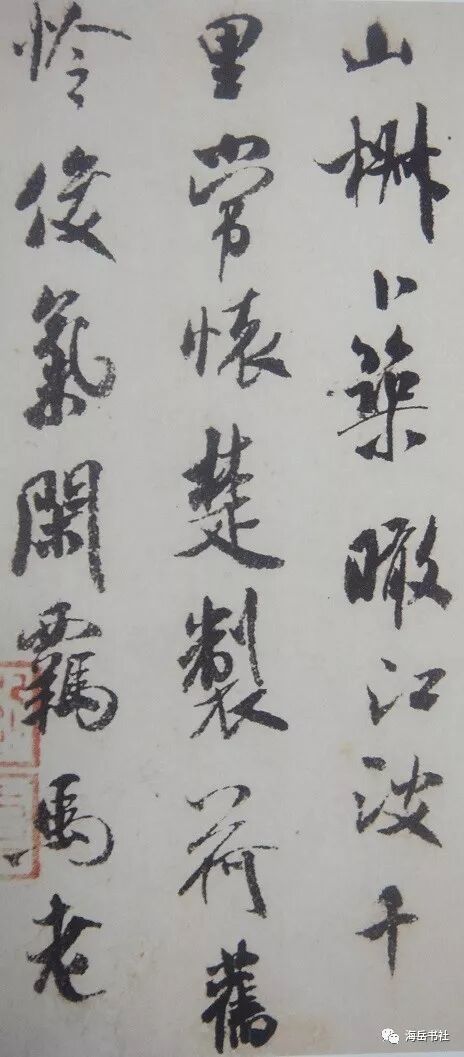 山椒卜築瞰江波千
里常懷楚製荷舊
怜俊氣閑羈馬老
海岳书社